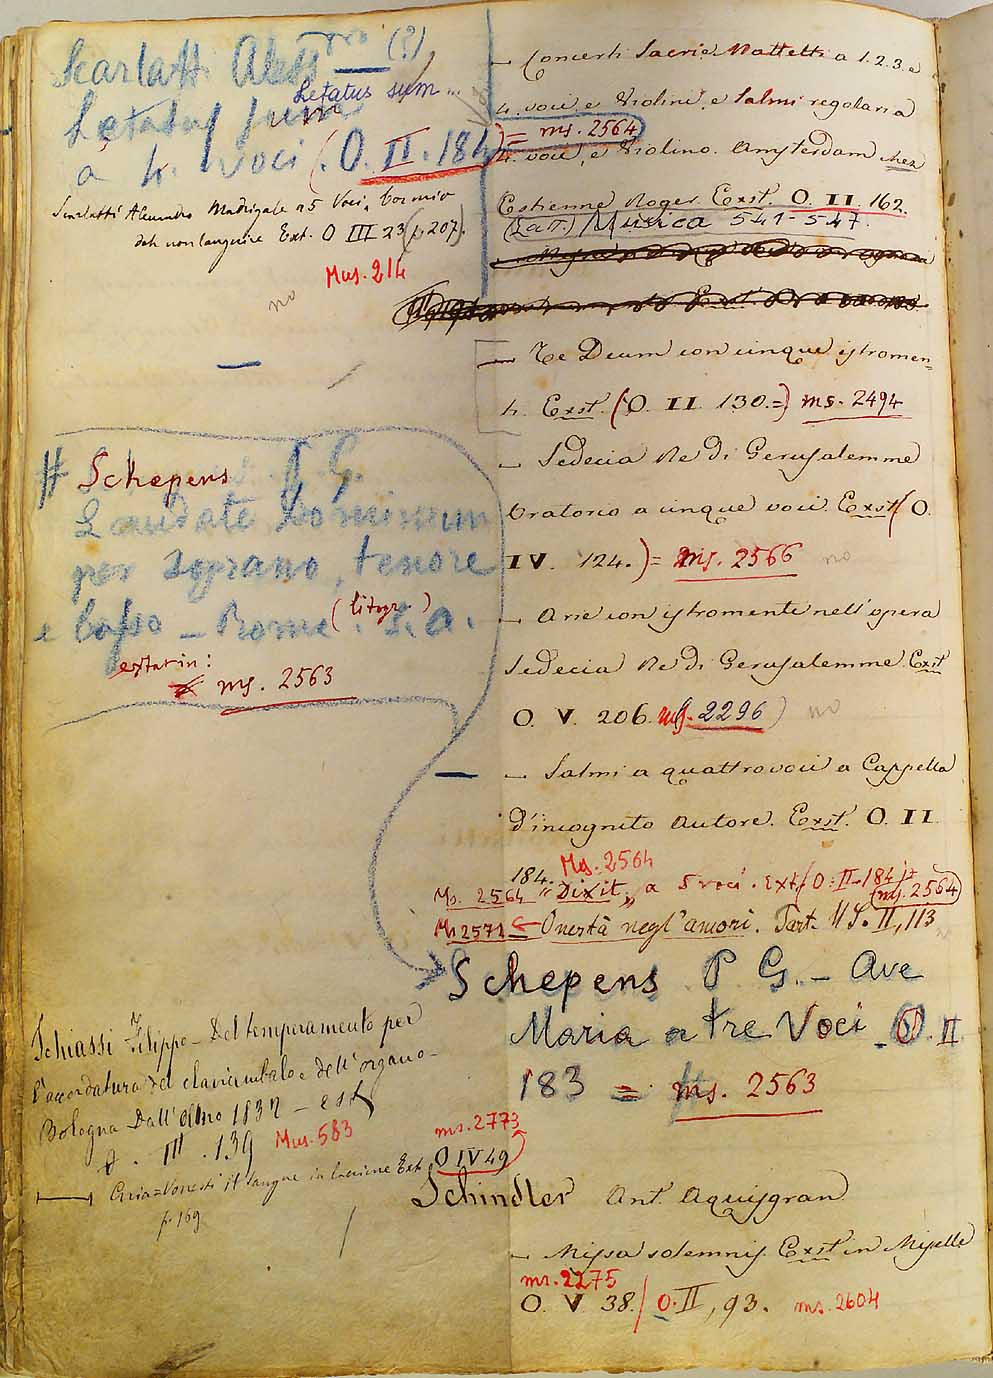 Scarlatti Aless.ro (?)
Letatus sum ...
Letatus sum
a 4. Voci. (O. II. 184) = ms. 2564
Scarlatti Alessandro Madrigale a 5 Voci, Cor mio
deh non languire Ext. O III 23 (p. 207).
Mus. 214
no
# Schepens P. G.
Laudate Dominum
per soprano, tenore
e basso – Roma (litogr.) s. a.
extat in:
ms. 2563
Schiassi Filippo – Del temperamento per
l'accordatura del clavicembalo e dell'organo –
Bologna Dall'Olmo 1832 – est
O. III. 139 Mus. 583
Aria = Vorresti il sangue in Ext. O IV 49
ms. 2773
p. 169
– Concerti Sacri. Mottetti a 1. 2. 3. e
4. voci e Violini, e Salmi regolari a
4. voci, e Violino. Amsterdam chez
Estienne Roger. Exst. O. II. 162.
(Lat.) Musica 541-547.
– Te Deum con cinque istromen=
ti. Exst. (O. II. 130.=) ms. 2494
– Sedecia Re di Gerusalemme
Oratorio a cinque voci. Exst (O.
IV. 124.) = ms. 2566 no
– Arie con istromenti nell'opera
Sedecia Re di Gerusalemme. Exst
O. V. 206. ms. 2296) no
– Salmi a quattro voci a Cappella
d'incognito Autore. Exst. O. II.
184. Ms. 2564
Ms. 2564 "Dixit" a 5 voci. Ext. (O: II-184) (ms. 2564)
Ms 2571 Onestà negl'amori. Part. MS. II, 113
Schepens P. G. – Ave
Maria a tre Voci – O. II
183 = ms. 2563
Schindler Ant. Aquisgran
– Missa solemnis. Exst in Miscell.
ms. 2275
O. V 38. / O. II, 93. ms. 2604